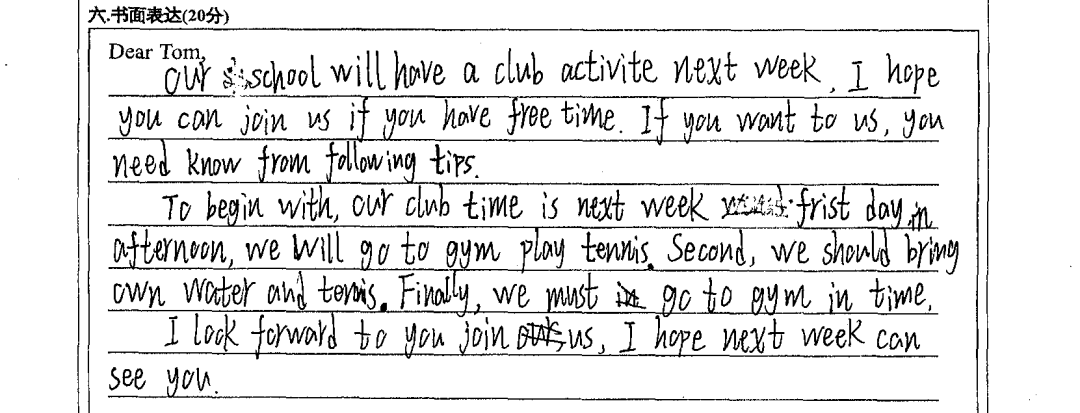 六.书面表达(20分)
Dear Tom,
Our school will have a club activite next week, I hope
you can join us if you have free time. If you want to us, you
need know from following tips.
To begin with, our club time is next week frist day in
afternoon, we will go to gym play tennis. Second, we should bring
own water and tennis. Finally, we must go to gym in time.
I look forward to you join us, I hope next week can
see you.